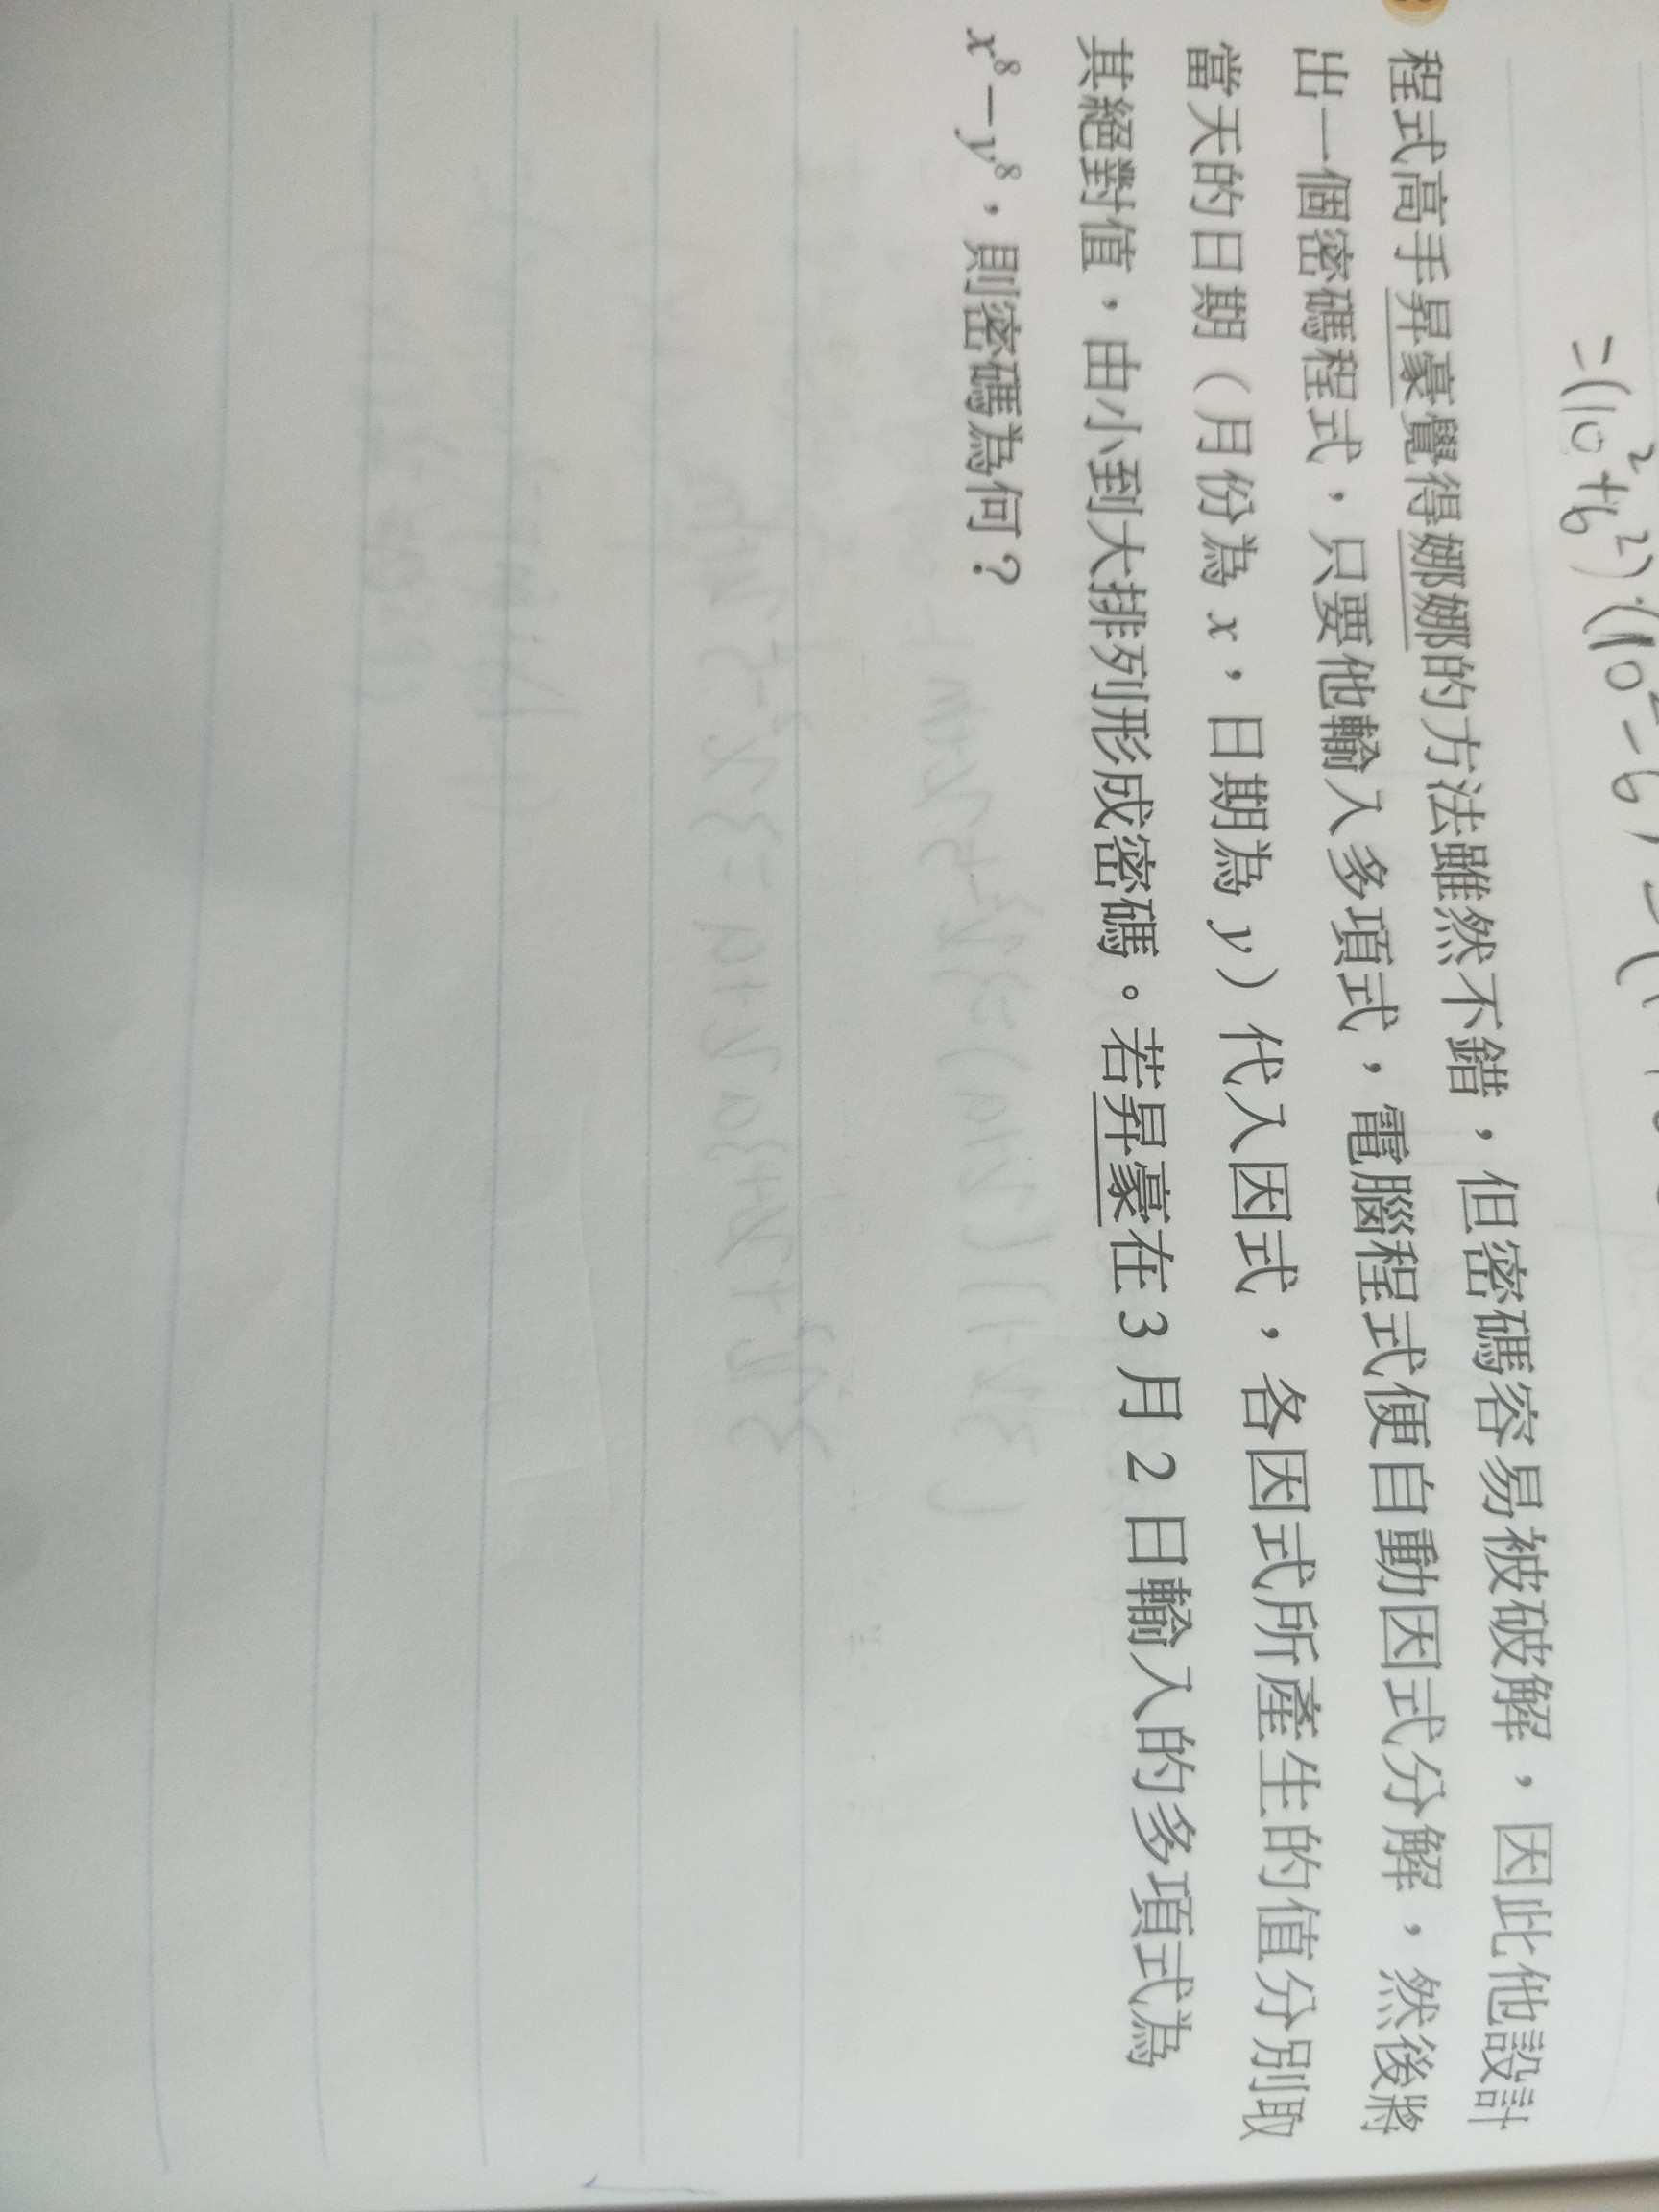 =(10²+6²)·(10²-6
程式高手昇豪覺得娜娜的方法雖然不錯，但密碼容易被破解，因此他設計
出一個密碼程式，只要他輸入多項式，電腦程式便自動因式分解，然後將
當天的日期（月份為 x，日期為 y）代入因式，各因式所產生的值分別取
其絕對值，由小到大排列形成密碼。若昇豪在 3 月 2 日輸入的多項式為
x⁸－y⁸，則密碼為何？